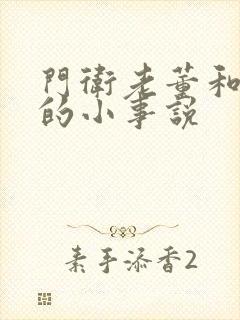 門衛老董和
的小事說
素手添香2